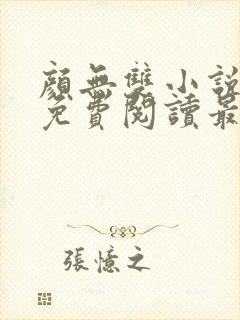 顏無雙小說
免費閱讀最
張憶之